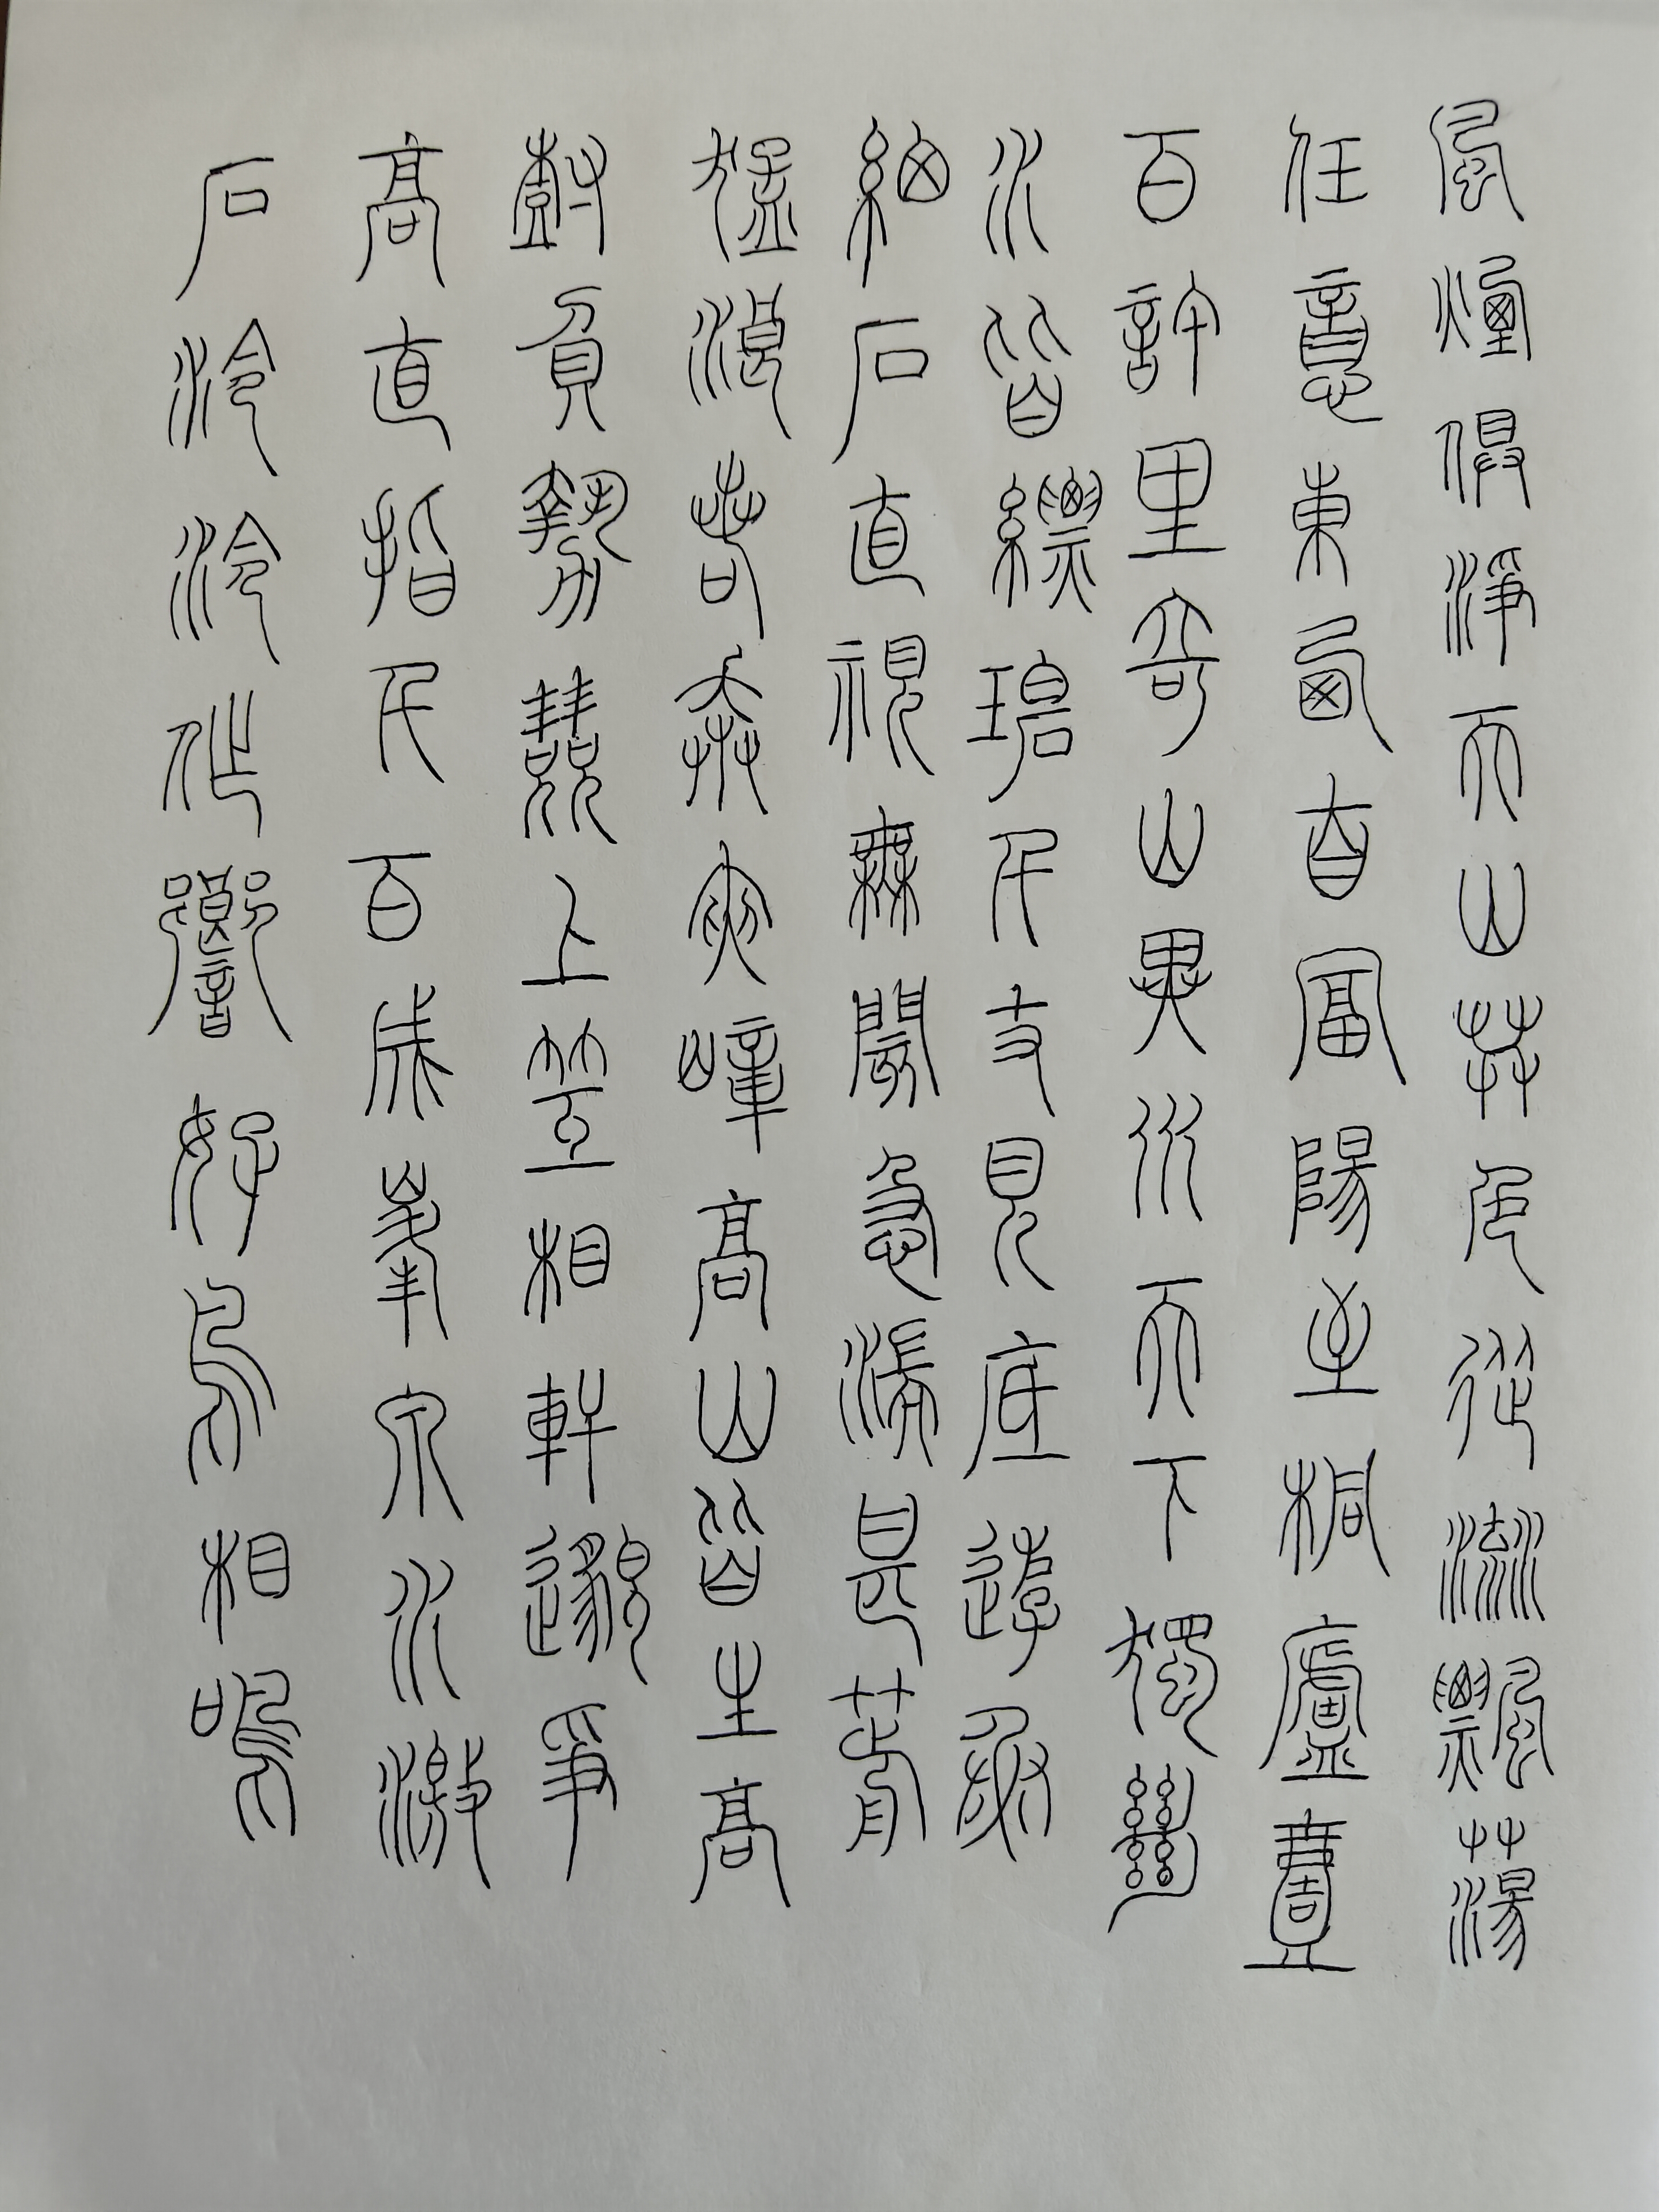 風煙俱淨天山共色從流飄蕩
任意東西自富陽至桐廬壹
百許里奇山異水天下獨絕
水皆縹碧千丈見底遊魚
細石直視無閡急湍甚箭
猛浪若奔夾嶂高山皆生高
樹負勢競上互相軒邈爭
高直指千百成峯泉水激
石泠泠作響好鳥相鳴